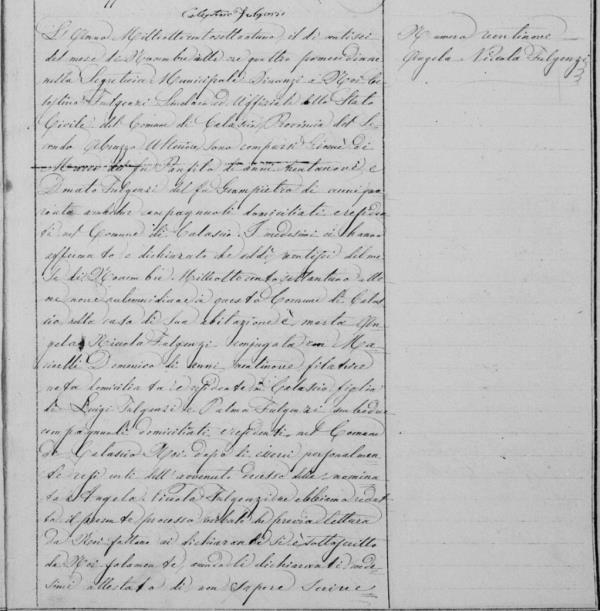 Celestino Fulgenzi
L'Anno Milleottocentosettantuno, il dì ventisei
del mese di Novembre alle ore quattro pomeridiane
nella Segreteria Municipale Dinanzi a Noi Ce
lestino Fulgenzi Sindaco ed Uffiziale dello Stato
Civile del Comune di Calascio Provincia del Se
condo Abruzzo Ulteriore, sono comparsi di
Marco del fu Panfilo di anni trentanove, e
Donato Fulgenzi del fu Giampietro di anni
ambidue campagnuoli domiciliati e residen
ti nel Comune di Calascio. I medesimi ci hanno
affermato e dichiarato che il dì ventisei del me
se di Novembre Milleottocentosettantuno alle o
re nove antimeridiane in questo Comune di Calas
cio nella casa di sua abitazione è morta An
gela Nicola Fulgenzi conjugata con Ma
Domenico di anni ventinove filatrice
nata domiciliata e residente in Calascio figlia
di Luigi Fulgenzi e Palma Fulgenzi ambedue
campagnuoli domiciliati e residenti nel Comune
di Calascio. Noi dopo di esserci personalmen
te dell'avvenuto decesso della nomina
ta Angela Nicola Fulgenzi ne abbiamo redat
to il presente processo verbale che previa lettura
da Noi fattane ai dichiaranti si è sottoscritto
da Noi solamente avendo li dichiaranti mede
simi attestato di non sapere scrivere
Numero ventinove
Angela Nicola Fulgenzi